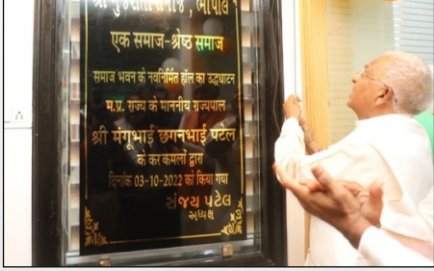 श्री गुजराती समाज, भोपाल
एक समाज-श्रेष्ठ समाज
समाज भवन के नवनिर्मित हॉल का उद्घाटन
म.प्र. राज्य के माननीय राज्यपाल
श्री मंगूभाई छगनभाई पटेल
के कर कमलों द्वारा
दिनांक 03-10-2022 को किया गया
સંજય પટેલ
અધ્યક્ષ